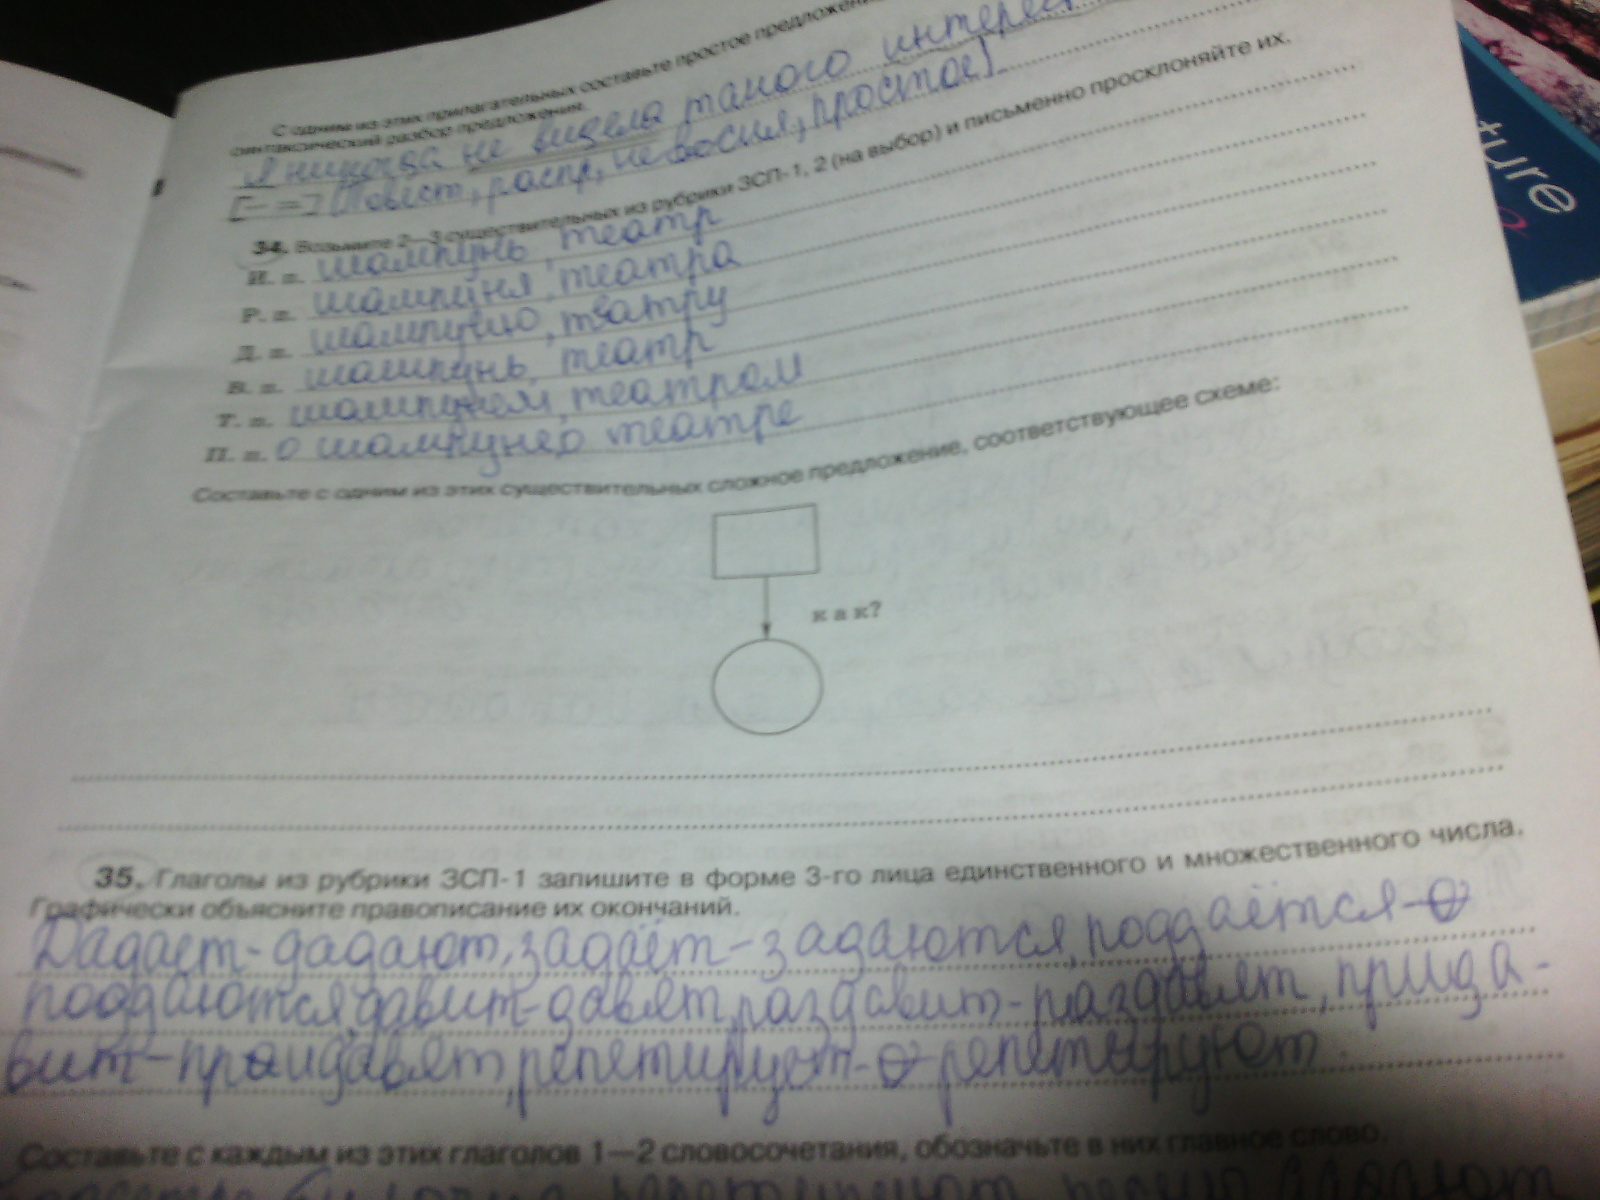 С одним из этих прилагательных составьте простое предложение
синтаксический разбор предложения.
Я никогда не видела такого
[— =] (Повест., распр., невоскл., простое)
34. Возьмите 2—3 существительных из рубрики ЗСП-1, 2 (на выбор) и письменно просклоняйте их.
И. п. шампунь, театр
Р. п. шампуня, театра
Д. п. шампуню, театру
В. п. шампунь, театр
Т. п. шампунем, театром
П. п. о шампуне, о театре
Составьте с одним из этих существительных сложное предложение, соответствующее схеме:
как?
35. Глаголы из рубрики ЗСП-1 запишите в форме 3-го лица единственного и множественного числа.
Графически объясните правописание их окончаний.
задаёт - задаются, поддаётся -
поддаются, давит - давят, раздавит - раздавят, прида-
вит - придавят, репетирует - репетируют.
Составьте с каждым из этих глаголов 1—2 словосочетания, обозначьте в них главное слово.
ture